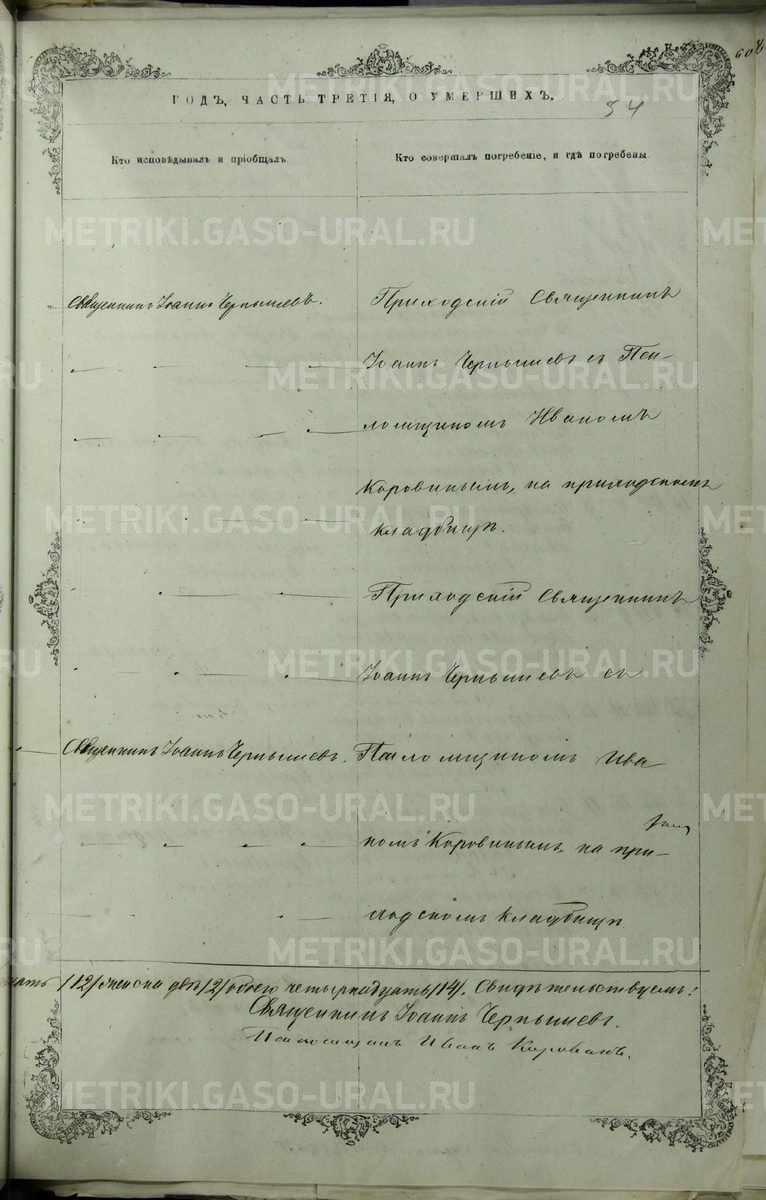 608
ГОДЪ, ЧАСТЬ ТРЕТІЯ, О УМЕРШИХЪ.
54
Кто исповѣдывалъ и пріобщалъ.
Кто совершалъ погребеніе, и гдѣ погребены.
Священникъ Іоаннъ Чернышевъ.
Приходскій Священникъ
Іоаннъ Чернышевъ съ Пса-
ломщикомъ Иваномъ
Коровинымъ, на приходскомъ
кладбищѣ.
Приходскій Священникъ
Іоаннъ Чернышевъ съ
Священникъ Іоаннъ Чернышевъ.
Псаломщикомъ Ива
номъ Коровинымъ, на при-
ходскомъ кладбищѣ.
цать /12/ женска двѣ /2/ обоего четырнадцать /14/. Свидѣтельствуемъ:
Священникъ Іоаннъ Чернышевъ.
Псаломщикъ Иванъ Коровинъ.
METRIKI.GASO-URAL.RU